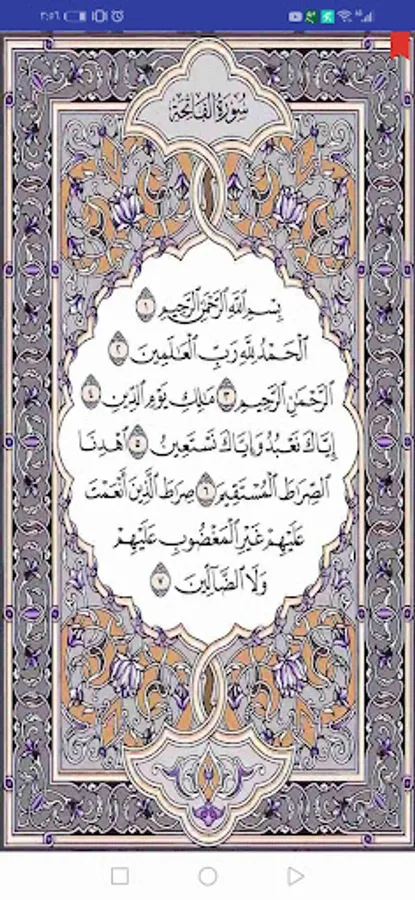 ٢:٥٦
سُورَةُ الفَاتِحَةِ
بِسۡمِ ٱللَّهِ ٱلرَّحۡمَٰنِ ٱلرَّحِيمِ ١
ٱلۡحَمۡدُ لِلَّهِ رَبِّ ٱلۡعَٰلَمِينَ ٢
ٱلرَّحۡمَٰنِ ٱلرَّحِيمِ ٣ مَٰلِكِ يَوۡمِ ٱلدِّينِ ٤
إِيَّاكَ نَعۡبُدُ وَإِيَّاكَ نَسۡتَعِينُ ٥ ٱهۡدِنَا
ٱلصِّرَٰطَ ٱلۡمُسۡتَقِيمَ ٦ صِرَٰطَ ٱلَّذِينَ أَنۡعَمۡتَ
عَلَيۡهِمۡ غَيۡرِ ٱلۡمَغۡضُوبِ عَلَيۡهِمۡ
وَلَا ٱلضَّآلِّينَ ٧